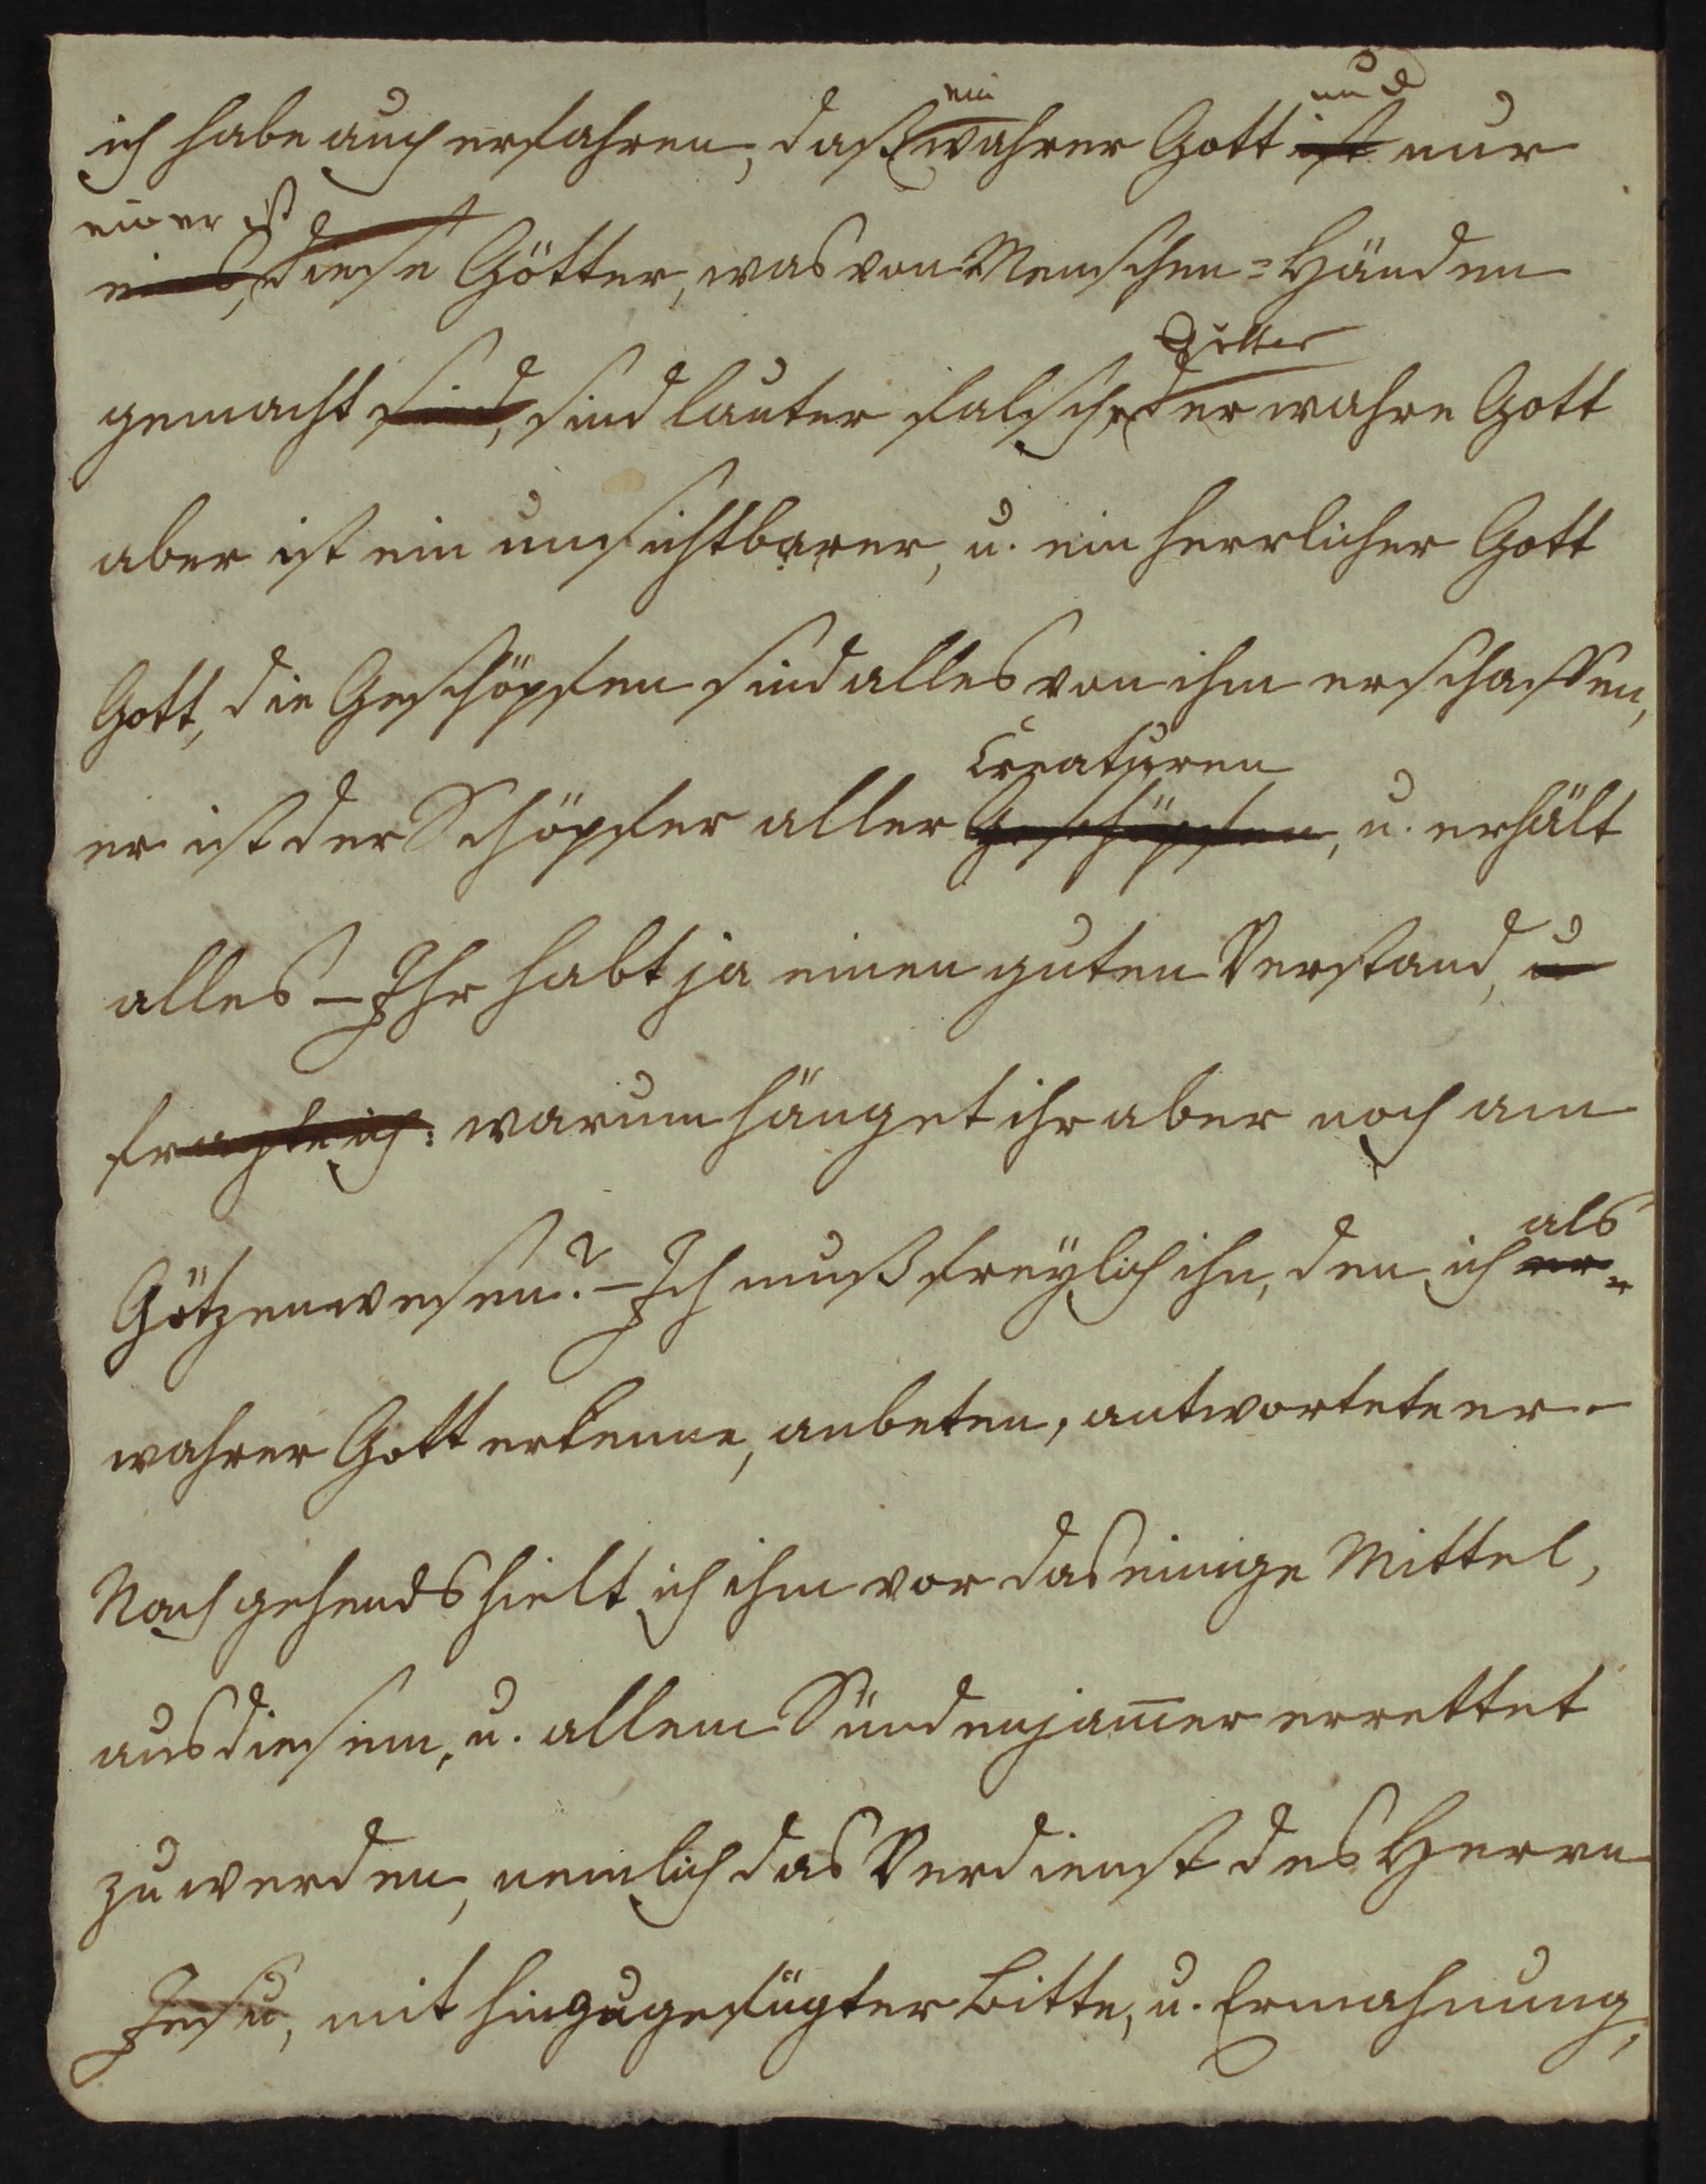 ich habe auch erfahren, daß ein wahrer Gott ist und nur
einer ist
eins, diese Götter, was von Menschen=Händen
gemacht sind, sind lauter falsche Götter der wahre Gott
aber ist ein unsichtbarer, u. ein herrlicher Gott
Gott, die Geschöpfen sind alles von ihm erschaffen,
Creaturen
er ist der Schöpfer aller Geschöpfen, u. erhält
alles – Ihr habt ja einen guten Verstand, u
fragte ich: warum hänget ihr aber noch am
als
Götzenwesen? – Ich muß freÿlich ihn, den ich er=
wahrer Gott erkenne, anbeten, antwortete er –
Nachgehends hielt ich ihm vor das einige Mittel,
aus diesem, u. allem Sündenjam̅er errettet
zu werden, nemlich das Verdienst des Herrn
Jesu, mit hinzugefügter Bitte, u. Ermahnung,